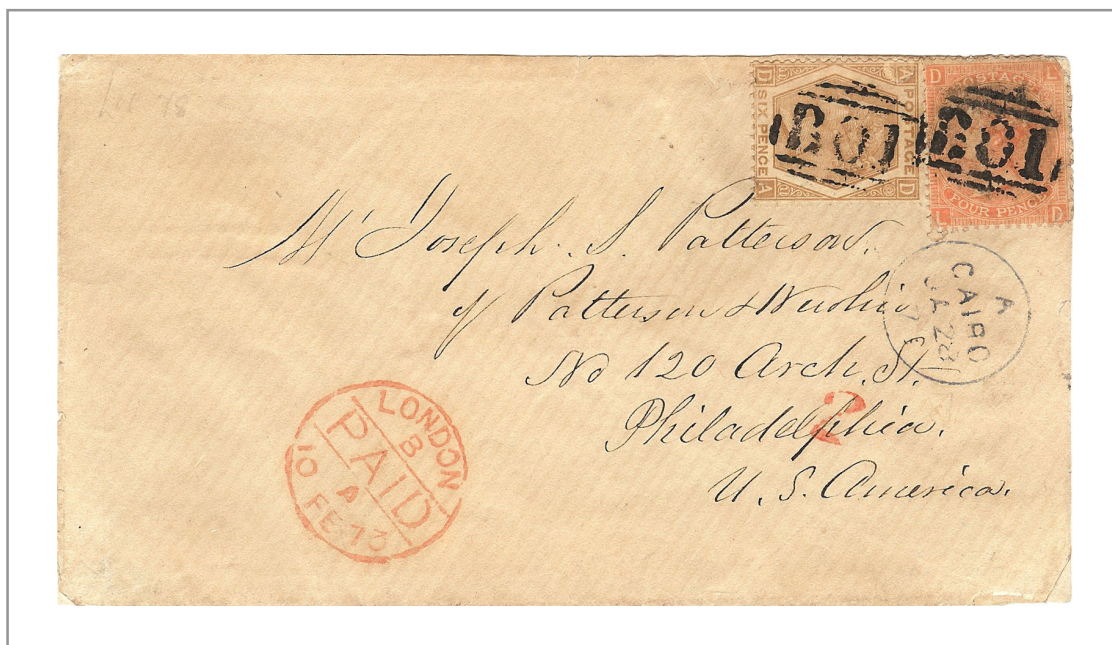 D A
SIX PENCE POSTAGE
A D
B01
D L
POSTAGE
FOUR PENCE
L D
B01
Mr Joseph. S. Patterson.
of Patterson &
No 120 Arch. St.
Philadelphia.
U. S. America.
A
CAIRO
JA 28
7
2
LONDON
B
PAID
A
10 FE 73